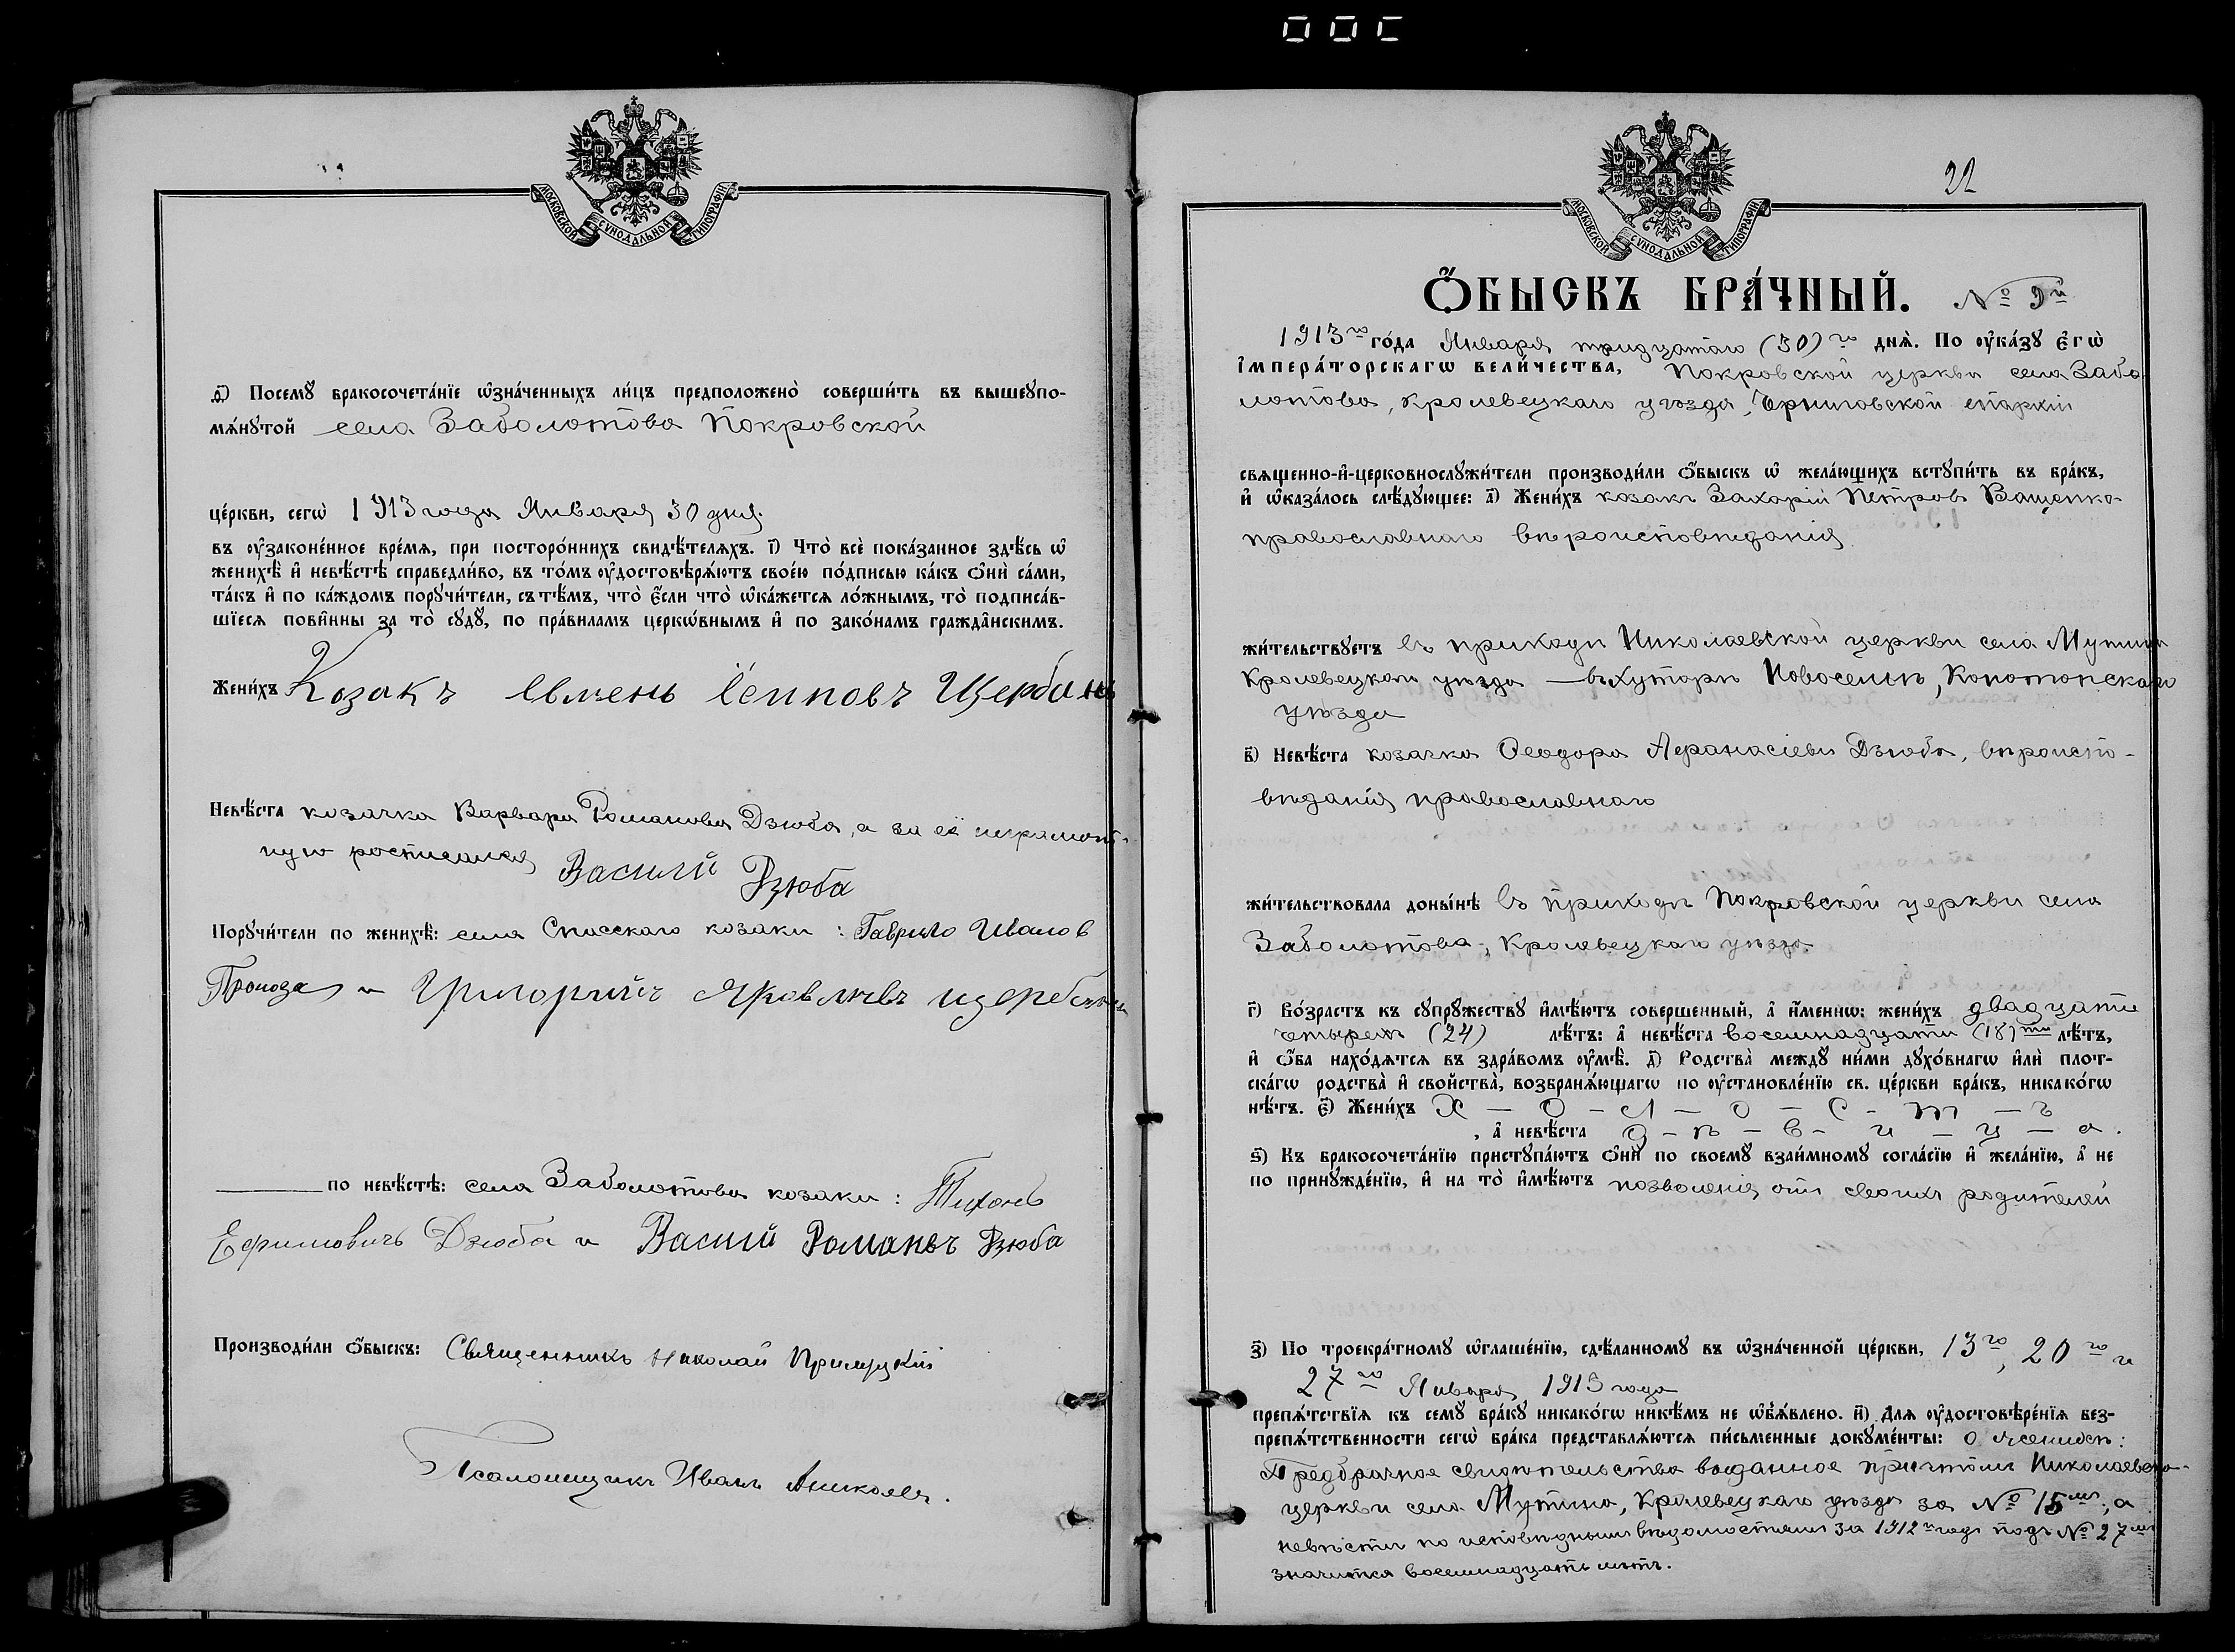 МОСКОВСКОЙ СѴНОДАЛЬНОЙ ТИПОГРАФІИ
д҃) Посемꙋ̀ бракосочета́нїе ѡ҆зна́ченныхъ ли́цъ предположено̀ соверши́ть въ вышеꙋпо-
мѧ́нꙋтой села Заболотова Покровской
це́ркви, сегѡ̀ 1913 года Января 30 дня.
въ ᲂу҆законе́нное вре́мѧ, при посторо́ннихъ свидѣ́телѧхъ. і҃) Что̀ всѐ пока́занное здѣ́сь ѡ҆
женихѣ̀ и҆ невѣ́стѣ справедли́во, въ то́мъ ᲂу҆достовѣрѧ́ютъ свое́ю по́дписью ка́къ ѻ҆нѝ са́ми,
та́къ и҆ по ка́ждомъ порꙋчи́тели, съ тѣ́мъ, что̀ є҆́сли что̀ ѡ҆ка́жетсѧ ло́жнымъ, то̀ подписа́в-
шїесѧ пови́нны за то̀ сꙋдꙋ̀, по пра́виламъ церкѡ́внымъ и҆ по зако́намъ гражда̑нскимъ.
Жени́хъ Козакъ Щербань
Невѣ́ста козачка Варвара Романова Дзюба, а за её неграмот-
ную росписался Василій Дзюба
Порꙋчи́тели по женихѣ̀: села Спасскаго козаки: Гаврило Иванов
и Григорий Яковлевъ
по невѣ́стѣ: села Заболотова козаки: Тихонъ
Ефимовичъ Дзюба и Василй Романовъ Дзюба
Производи́ли ѻ҆́быскъ: Священникъ Николай
Псаломщикъ Иванъ
22
МОСКОВСКОЙ СѴНОДАЛЬНОЙ ТИПОГРАФІИ
Ѻ҆́БЫСКЪ БРА́ЧНЫЙ. № 9й
1913го го́да Января тридцатаго (30)го днѧ̀. По ᲂу҆ка́зꙋ є҆гѡ̀
і҆мпера́торскагѡ вели́чества, Покровской церкви села Забо
лотова, Кролевецкаго уѣзда, Черниговской епархіи
свѧщенно-и҆-церковнослꙋжи́тели производи́ли ѻ҆́быскъ ѡ҆ жела́ющихъ встꙋпи́ть въ бра́къ,
и҆ ѡ҆каза́лось слѣ́дꙋющее: а҃) Жени́хъ козакъ Захарій Петровъ Ващенко-
православнаго вѣроисповѣданія
жи́тельствꙋетъ въ приходѣ Николаевской церкви села Мутина
Кролевецкаго уѣзда — въ хуторѣ Новоселикѣ, Конотопскаго
уѣзда
в҃) Невѣ́ста козачка Ѳеодора Аѳанасіева Дзюба, вѣроиспо-
вѣданія православнаго
жи́тельствовала доны́нѣ въ приходѣ Покровской церкви села
Заболотова, Кролевецкаго уѣзда
г҃) Во́зрастъ къ сꙋпрꙋ́жествꙋ и҆мѣ́ютъ соверше́нный, а҆ и҆́меннѡ: жени́хъ двадцати
четырехъ (24) лѣ́тъ: а҆ невѣ́ста восемнадцати (18)ти лѣ́тъ,
и҆ ѻ҆́ба нахо́дѧтсѧ въ здра́вомъ ᲂу҆мѣ̀. д҃) Родства̀ междꙋ̀ ни́ми дꙋхо́внагѡ и҆лѝ плот-
ска́гѡ родства̀ и҆ свойства̀, возбранѧ́ющагѡ по ᲂу҆становле́нїю св. це́ркви бра́къ, никако́гѡ
нѣ́тъ. є҃) Жени́хъ Х — о — л — о — с — т — ъ
, а҆ невѣ́ста д — ѣ — в — и — ц — а.
ѕ҃) Къ бракосочета́нїю пристꙋпа́ютъ ѻ҆нѝ по своемꙋ̀ взаи́мномꙋ согла́сїю и҆ жела́нїю, а҆ не
по принꙋжде́нїю, и҆ на то̀ и҆мѣ́ютъ позволенія отъ своихъ родителей
з҃) По троекра́тномꙋ ѡ҆глаше́нїю, сдѣ́ланномꙋ въ ѡ҆зна́ченной це́ркви, 13го, 20го и
27го Января 1913 года
препѧ́тствїѧ къ семꙋ̀ бра́кꙋ никако́гѡ никѣ́мъ не ѡ҆б̾ѧ́влено. и҃) Длѧ ᲂу҆достовѣре́нїѧ без-
препѧ́тственности сегѡ̀ бра́ка представлѧ́ютсѧ пи́сьменные докꙋме́нты: о женихѣ:
Предбрачное свидѣтельство выданное причтомъ Николаевско-
церкви села Мутина, Кролевецкаго уѣзда за № 15мъ, а
невѣсти по исповѣднымъ вѣдомостямъ за 1912й годъ подъ № 27мъ
значится восемнадцать лѣтъ.